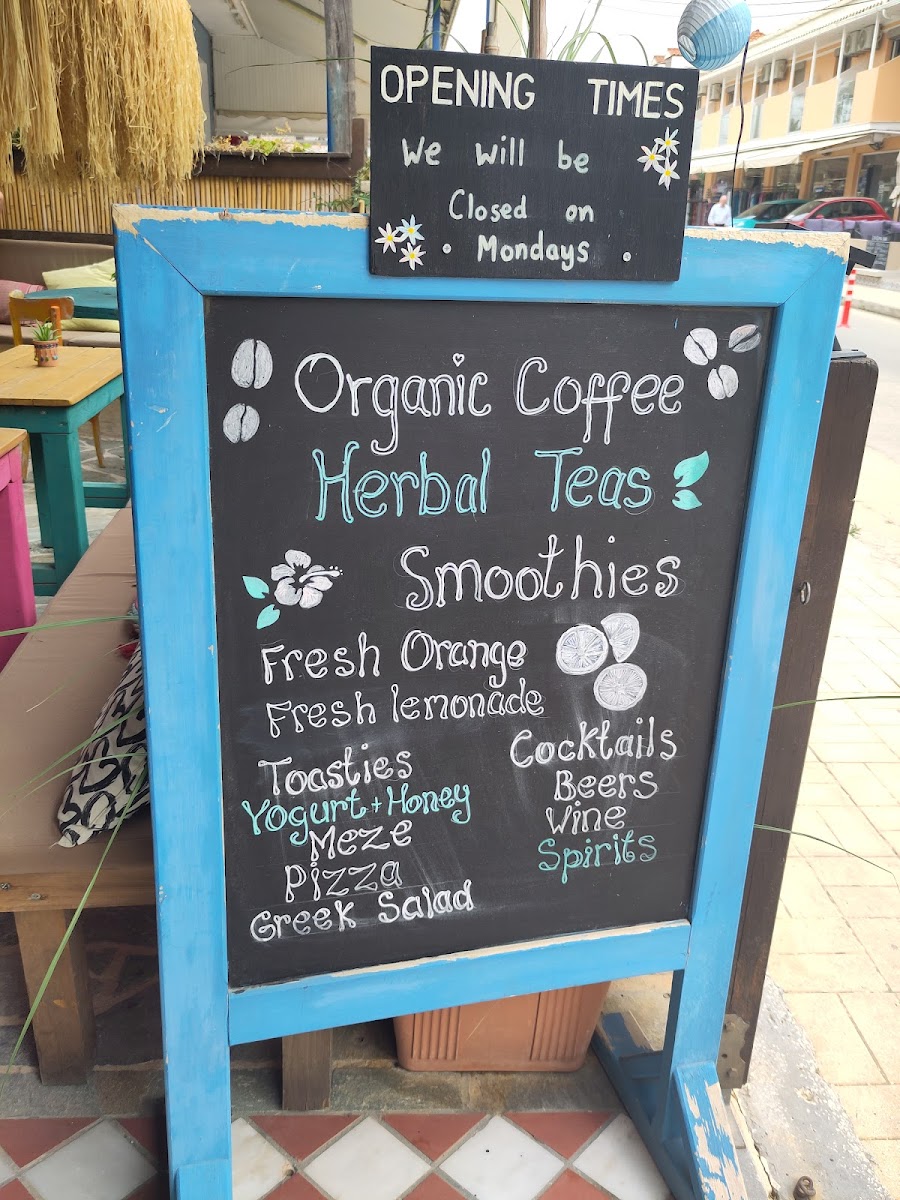 OPENING TIMES
We will be
Closed on
Mondays
Organic Coffee
Herbal Teas
Smoothies
Fresh Orange
Fresh lemonade
Toasties
Yogurt + Honey
Meze
Pizza
Greek Salad
Cocktails
Beers
Wine
Spirits